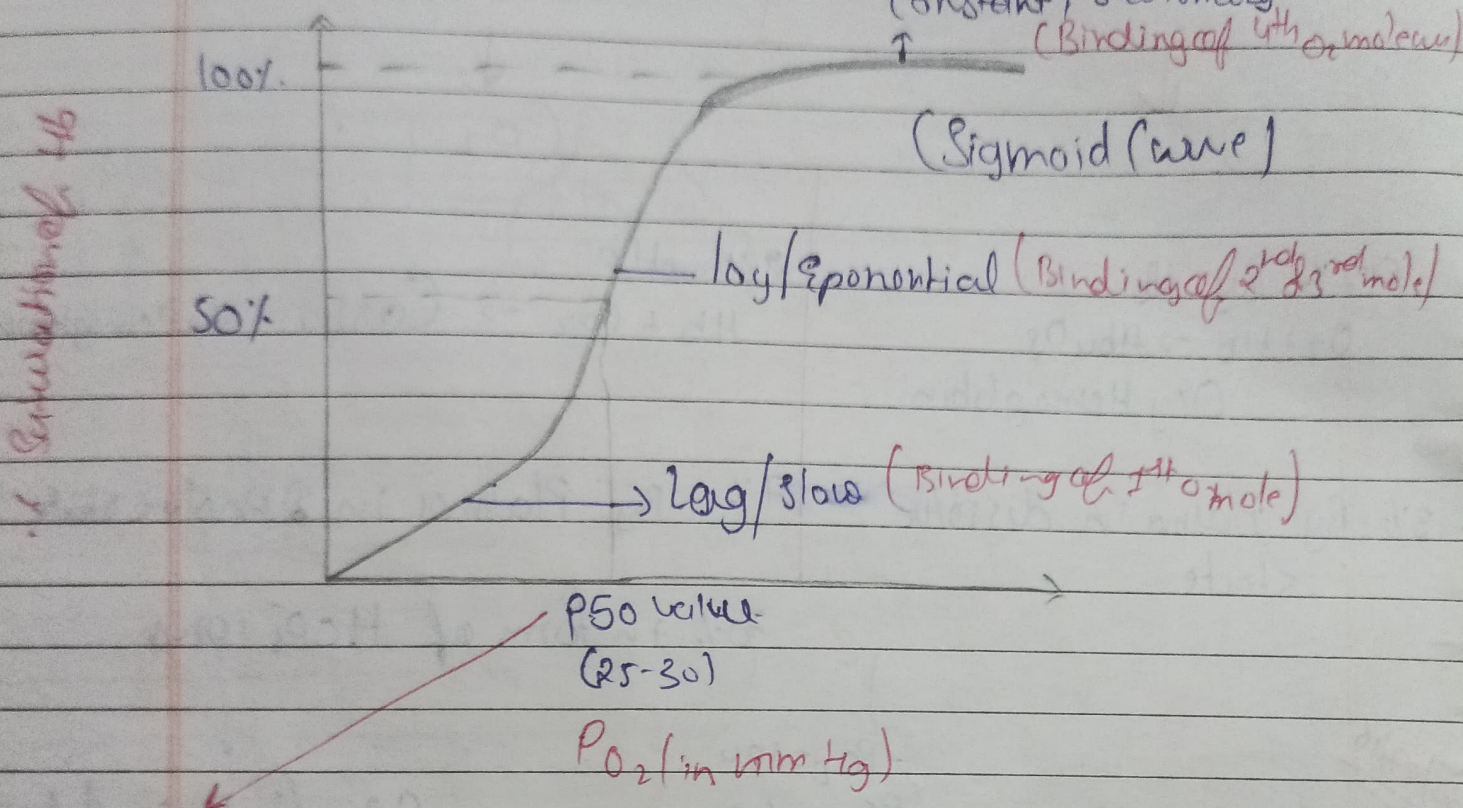 (Binding of 4th O2 molecul)
100%
(Sigmoid Curve)
log/Eponential (Binding of 2nd & 3rd mole)
50%
% Saturation of Hb
Lag/Slow (Binding of 1st O mole)
P50 value
(25-30)
PO2 (in mm Hg)